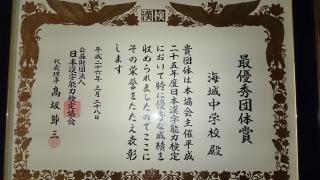 漢検
最優秀団体賞
海城中学校 殿
貴団体は本協会主催平成
二十五年度日本漢字能力検定
において特に優秀な成績を
収められましたのでここに
その栄誉をたたえ表彰
します
平成二十六年三月二十八日
公益財団法人
日本漢字能力検定協会
代表理事 高坂節三